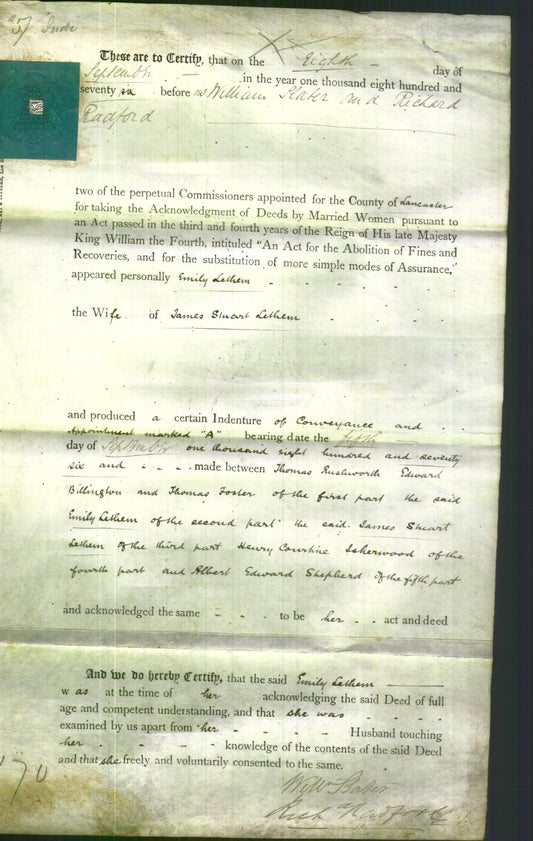 These are to Certify, that on the Eighth day of
September in the year one thousand eight hundred and
seventy six before us William Slater and Richard
Radford
two of the perpetual Commissioners appointed for the County of Lancaster
for taking the Acknowledgment of Deeds by Married Women pursuant to
an Act passed in the third and fourth years of the Reign of His late Majesty
King William the Fourth, intituled "An Act for the Abolition of Fines and
Recoveries, and for the substitution of more simple modes of Assurance,"
appeared personally Emily Lethem
the Wife of James Stuart Lethem
and produced a certain Indenture of Conveyance and
Appointment marked "A" bearing date the fifth
day of September one thousand eight hundred and seventy
six and made between Thomas Rushworth Edward
Billington and Thomas Foster of the first part the said
Emily Lethem of the second part the said James Stuart
Lethem of the third part Henry Isherwood of the
fourth part and Albert Edward Shepherd of the fifth part
and acknowledged the same to be her act and deed
And we do hereby Certify, that the said Emily Lethem
was at the time of her acknowledging the said Deed of full
age and competent understanding, and that she was
examined by us apart from her Husband touching
her knowledge of the contents of the said Deed
and that she freely and voluntarily consented to the same.
Wm Slater
Richd Radford